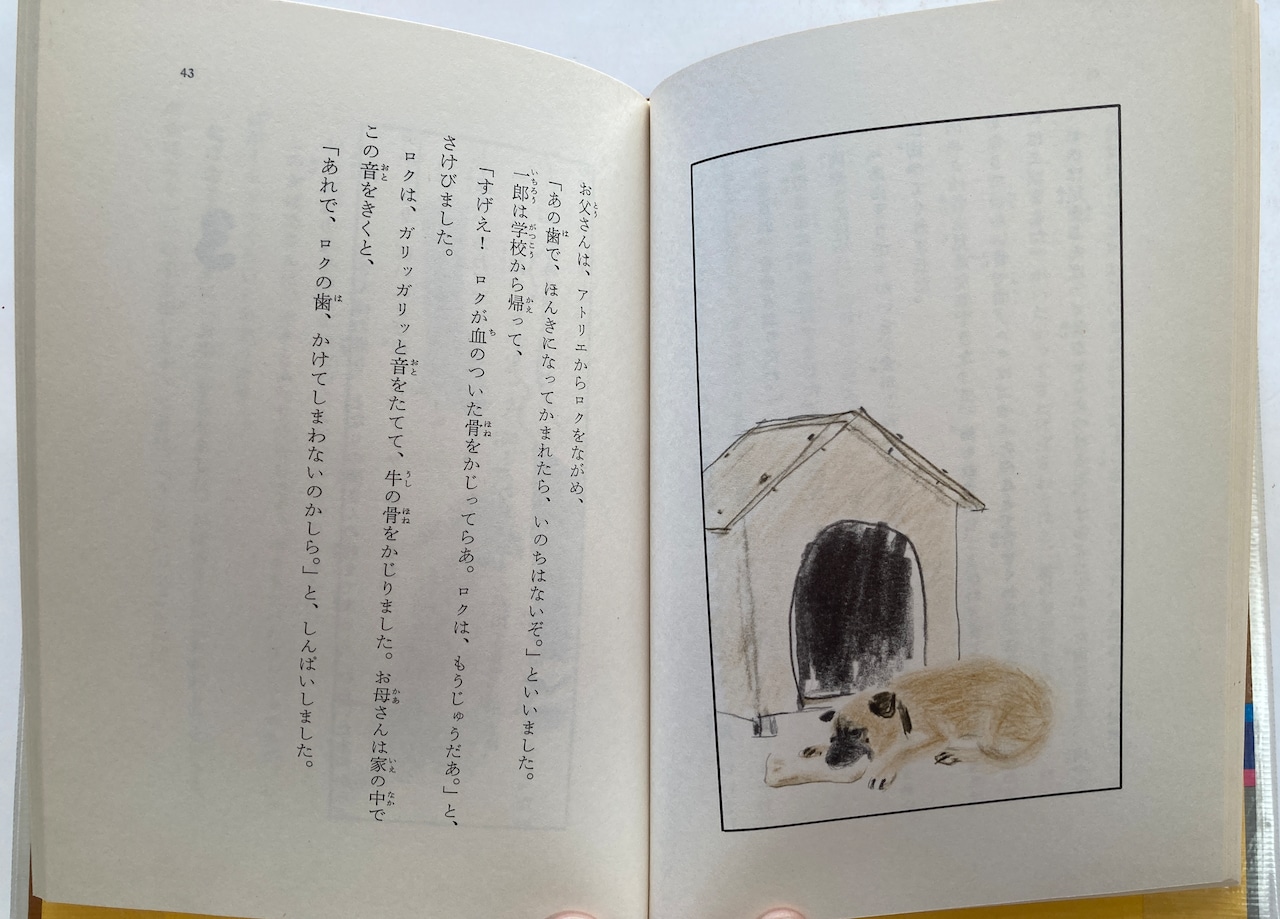 お父さんは、アトリエからロクをながめ、
「あの歯で、ほんきになってかまれたら、いのちはないぞ。」といいました。
一郎は学校から帰って、
「すげえ！　ロクが血のついた骨をかじってらあ。ロクは、もうじゅうだあ。」と、
さけびました。
ロクは、ガリッガリッと音をたてて、牛の骨をかじりました。お母さんは家の中で
この音をきくと、
「あれで、ロクの歯、かけてしまわないのかしら。」と、しんぱいしました。
43